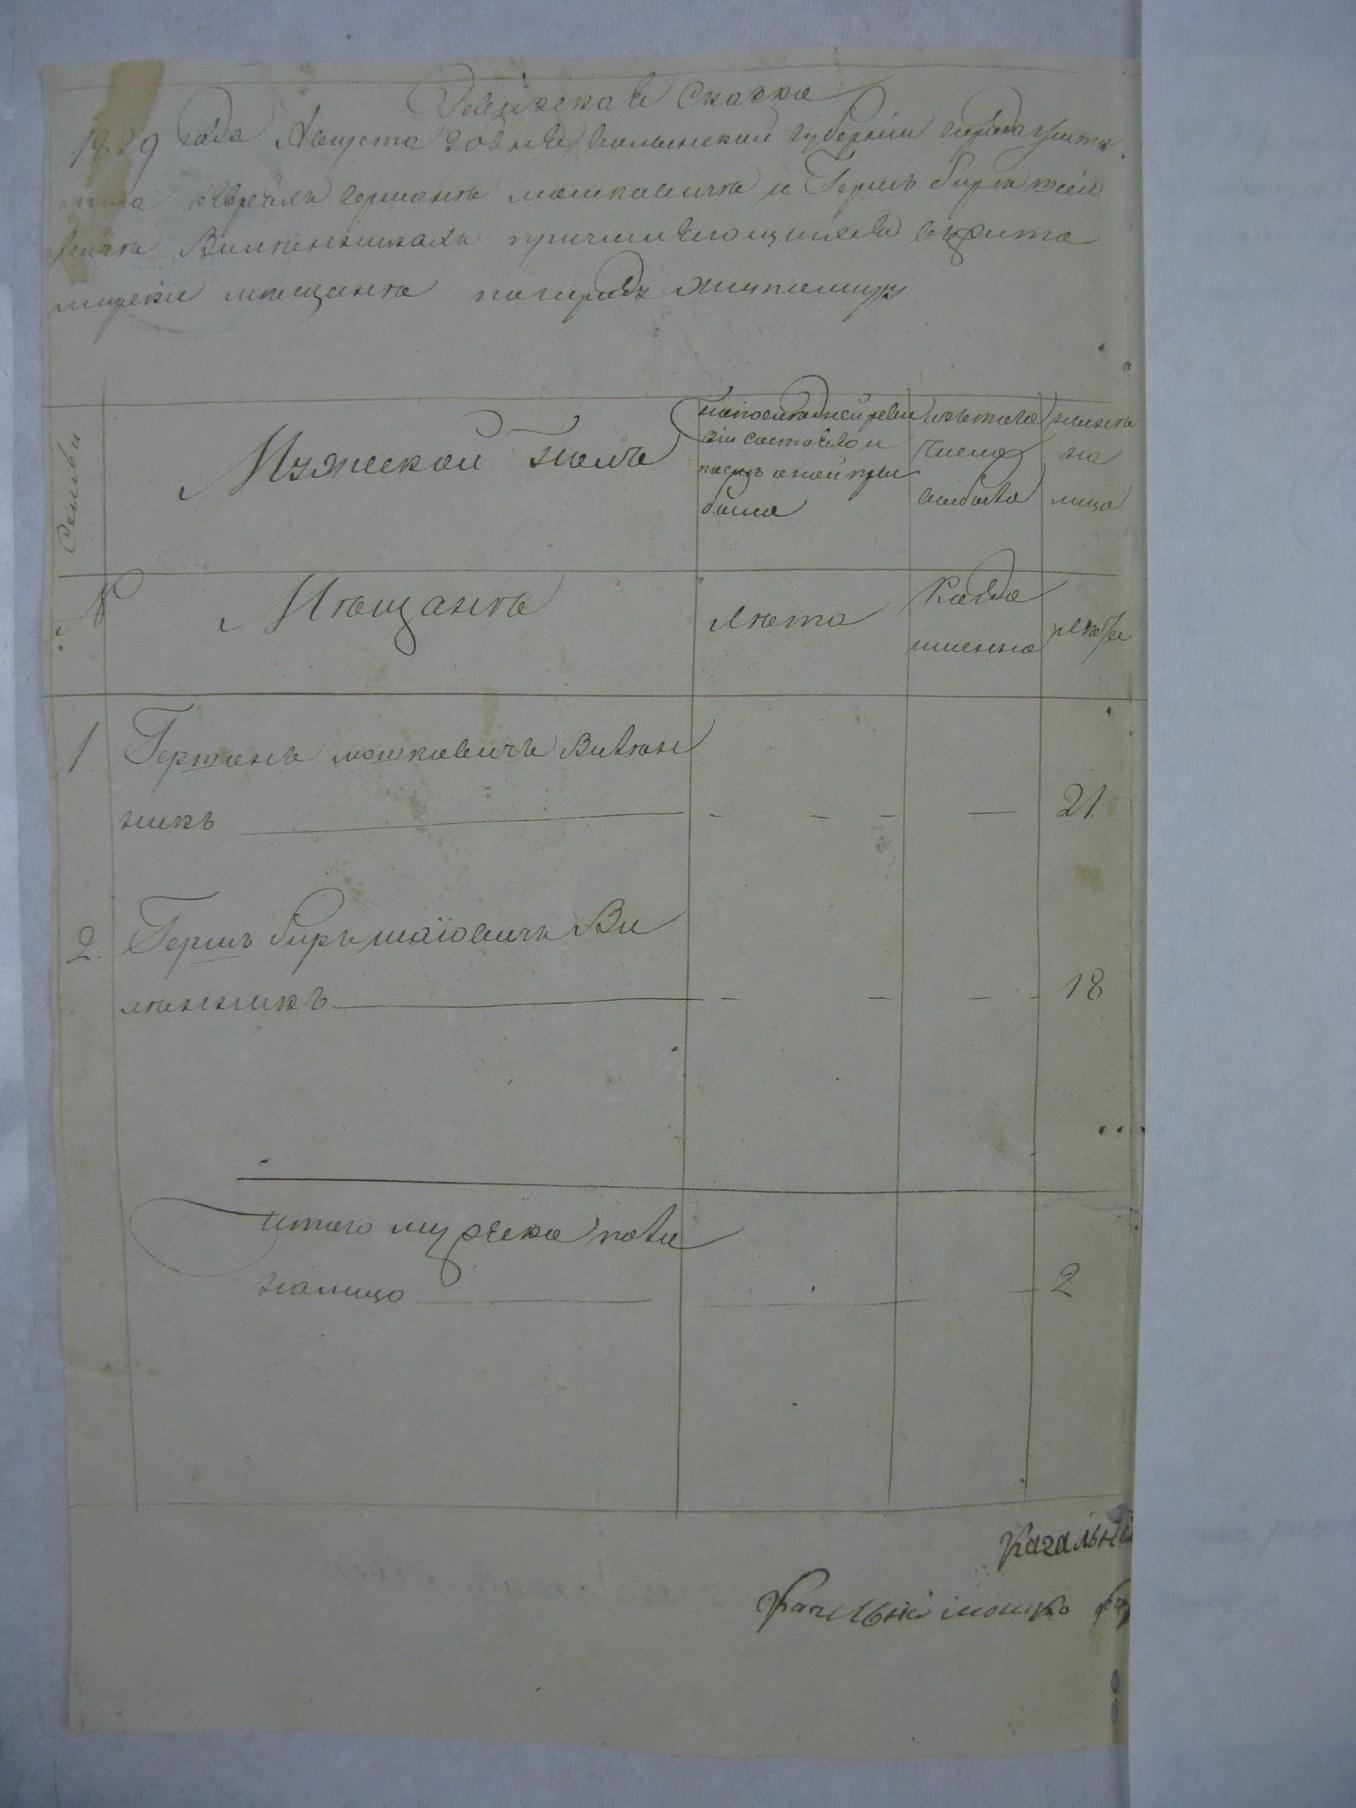 Ревизская Сказка
1829 года Августа 20 дня Волынской губернии города Жито
мира евреямъ Германа мошковича и Гершъ Бирк шаiо
вича Вилкенникахъ причисляющихся въ жито
мирские мещане по городу Житомиру
Семьи
Мужеской полъ
на последней реви
зии состояло и
после оной при
было
изъ того
числа
выбыло
ныне
на
лицо
№
Мѣщане
Лѣта
Когда
именно
лѣта
1 Германъ мошковичъ Вилкен
никъ 21.
2. Гершъ Бирк шаiовичъ Ви
лкенникъ 18
итого мужеска пола
налицо 2
Кагальный
Кагальни мошко